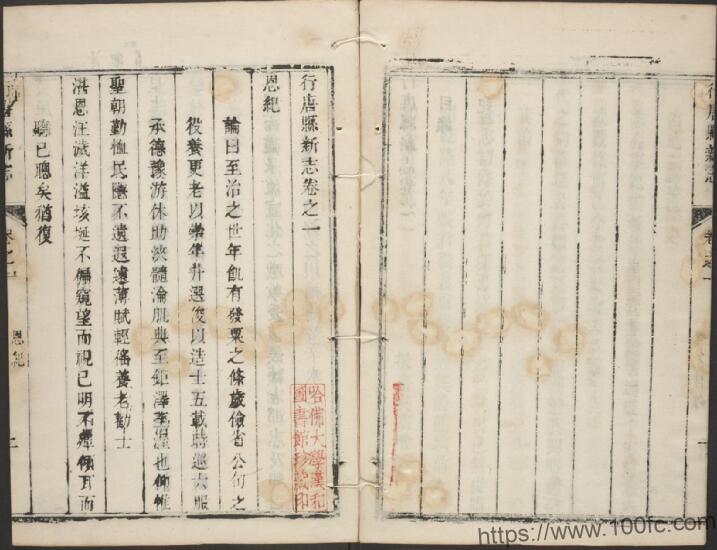 行唐縣新志
卷之一
行唐縣新志卷之一
恩紀
論曰至治之世年飢有發粟之條歲儉省公旬之
役養更老以崇年升選俊以造士五載時巡六服
承德豫游休助浹髓淪肌典至鉅澤至渥也仰惟
聖朝勤恤民隱不遺遐邇薄賦輕徭養老勸士
洪恩汪濊洋溢垓埏不徧窺望而視已明不殫傾耳而
聽已聰矣猶復
行唐縣新志
卷之一
恩紀
哈佛大學漢和
圖書館珍藏印
https://www.100fc.com